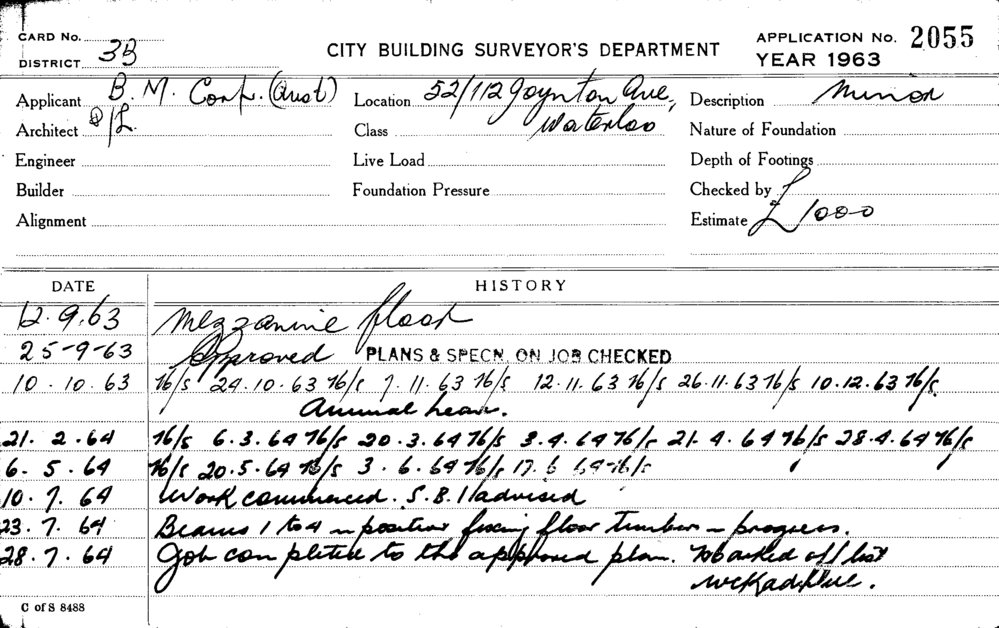 CARD No.
DISTRICT 3B
CITY BUILDING SURVEYOR'S DEPARTMENT
APPLICATION No. 2055
YEAR 1963
Applicant B. M. Corp. (Aust)
Architect P/L.
Engineer
Builder
Alignment
Location 52/112 Joynton Ave.,
Class Waterloo
Live Load
Foundation Pressure
Description Minor
Nature of Foundation
Depth of Footings
Checked by
Estimate £1000
DATE HISTORY
12.9.63 Mezzanine floor
25-9-63 Approved PLANS & SPECN. ON JOB CHECKED
10.10.63 N/S 24.10.63 N/S 7.11.63 N/S 12.11.63 N/S 26.11.63 N/S 10.12.63 N/S.
Annual leave.
21.2.64 N/S 6.3.64 N/S 20.3.64 N/S 3.4.64 N/S 21.4.64 N/S 28.4.64 N/S
6.5.64 N/S 20.5.64 N/S 3.6.64 N/S 17.6.64 N/S
10.7.64 Work commenced. S.B.I advised
23.7.64 Beams 1 to 4 in position fixing floor timbers in progress.
28.7.64 Job completed to the approved plan. Marked off list
C of S 8488